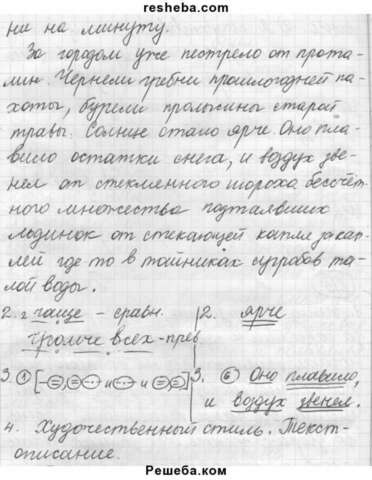 resheba.com
ни на минуту.
За городом уже пестрело от прота-
лин. Чернели гребни прошлогодней па-
хоты, бурели пролысины старой
травы. Солнце стало ярче. Оно пла-
вило остатки снега, и воздух зве-
нел от стеклянного шороха бессчёт-
ного множества подтаявших
льдинок от стекающей капля за кап-
лей где то в тайниках сугробов та-
лой воды.
2. чаще – сравн.
громче всех – прев
3. ① [–=, =, и и =, =]
2. ярче
3. ⑥ Оно плавило,
и воздух звенел.
4. Художественный стиль. Текст-
описание.
Решеба.ком